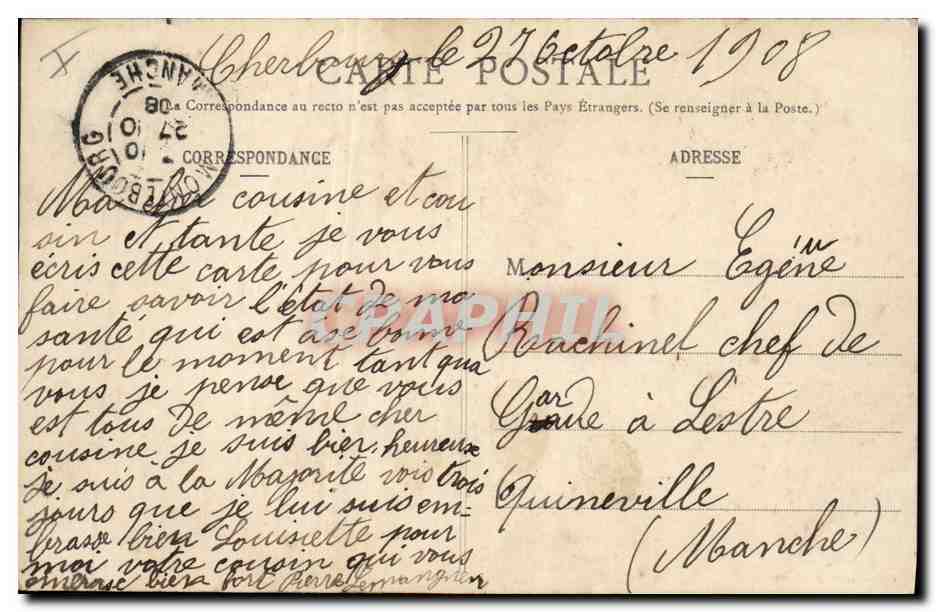 Cherbourg le 27 Octobre 1908
CARTE POSTALE
La Correspondance au recto n'est pas acceptée par tous les Pays Étrangers. (Se renseigner à la Poste.)
MONTEBOURG
MANCHE
10
27 10
08
CORRESPONDANCE
Ma cousine et cou
sin et tante je vous
écris cette carte pour vous
faire savoir l'état de ma
santé qui est ase bonne
pour le moment tant qua
vous je pense que vous
est tous de même cher
cousine je suis bien heureuse
je suis à la Majorité vois trois
jours que je lui suis em-
brasse bien Louisiette pour
moi votre cousin qui vous
embrase bien fort Pierre
ADRESSE
Monsieur Egénue
Rachinel chef de
Garde à Lestre
Quineville
(Manche)
CPAPHIL